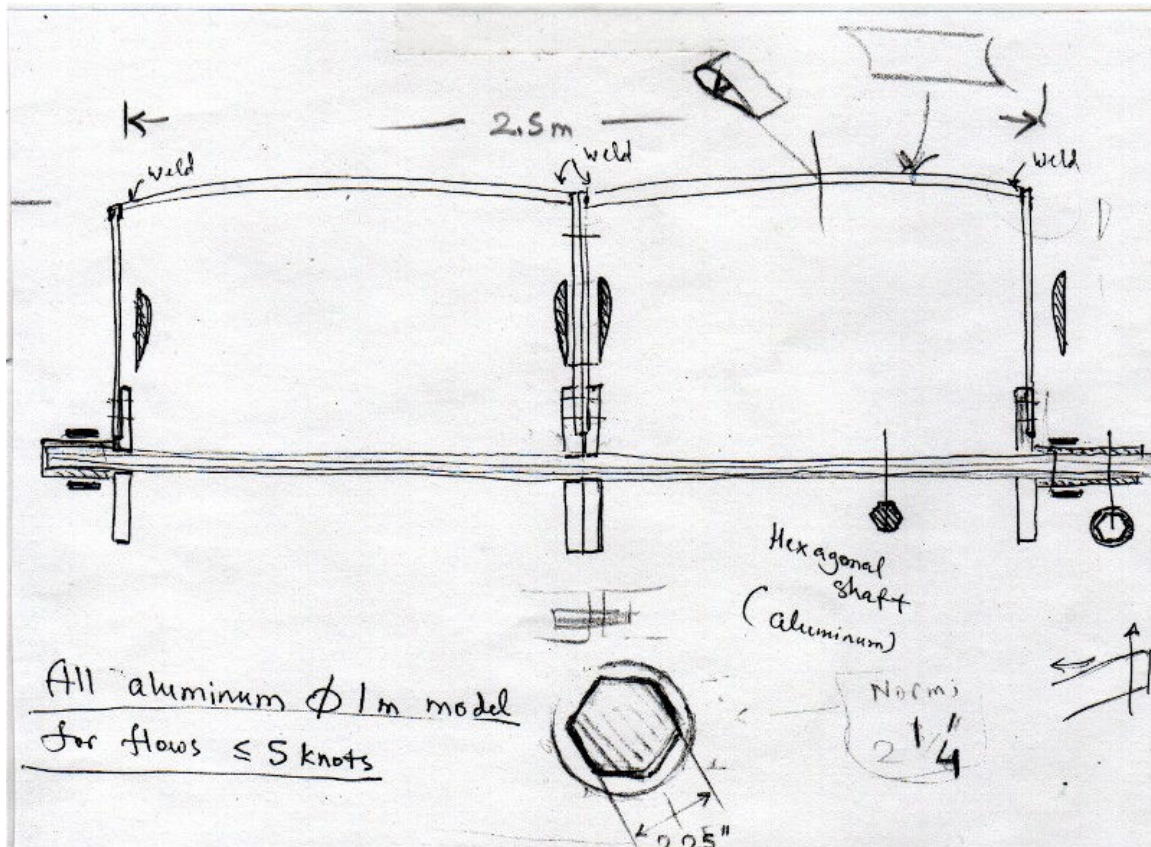 2.5m
weld
weld
weld
Hexagonal
shaft
(aluminum)
All aluminum ϕ 1m model
for flows ≤ 5 knots
2 1/4"
2.25"